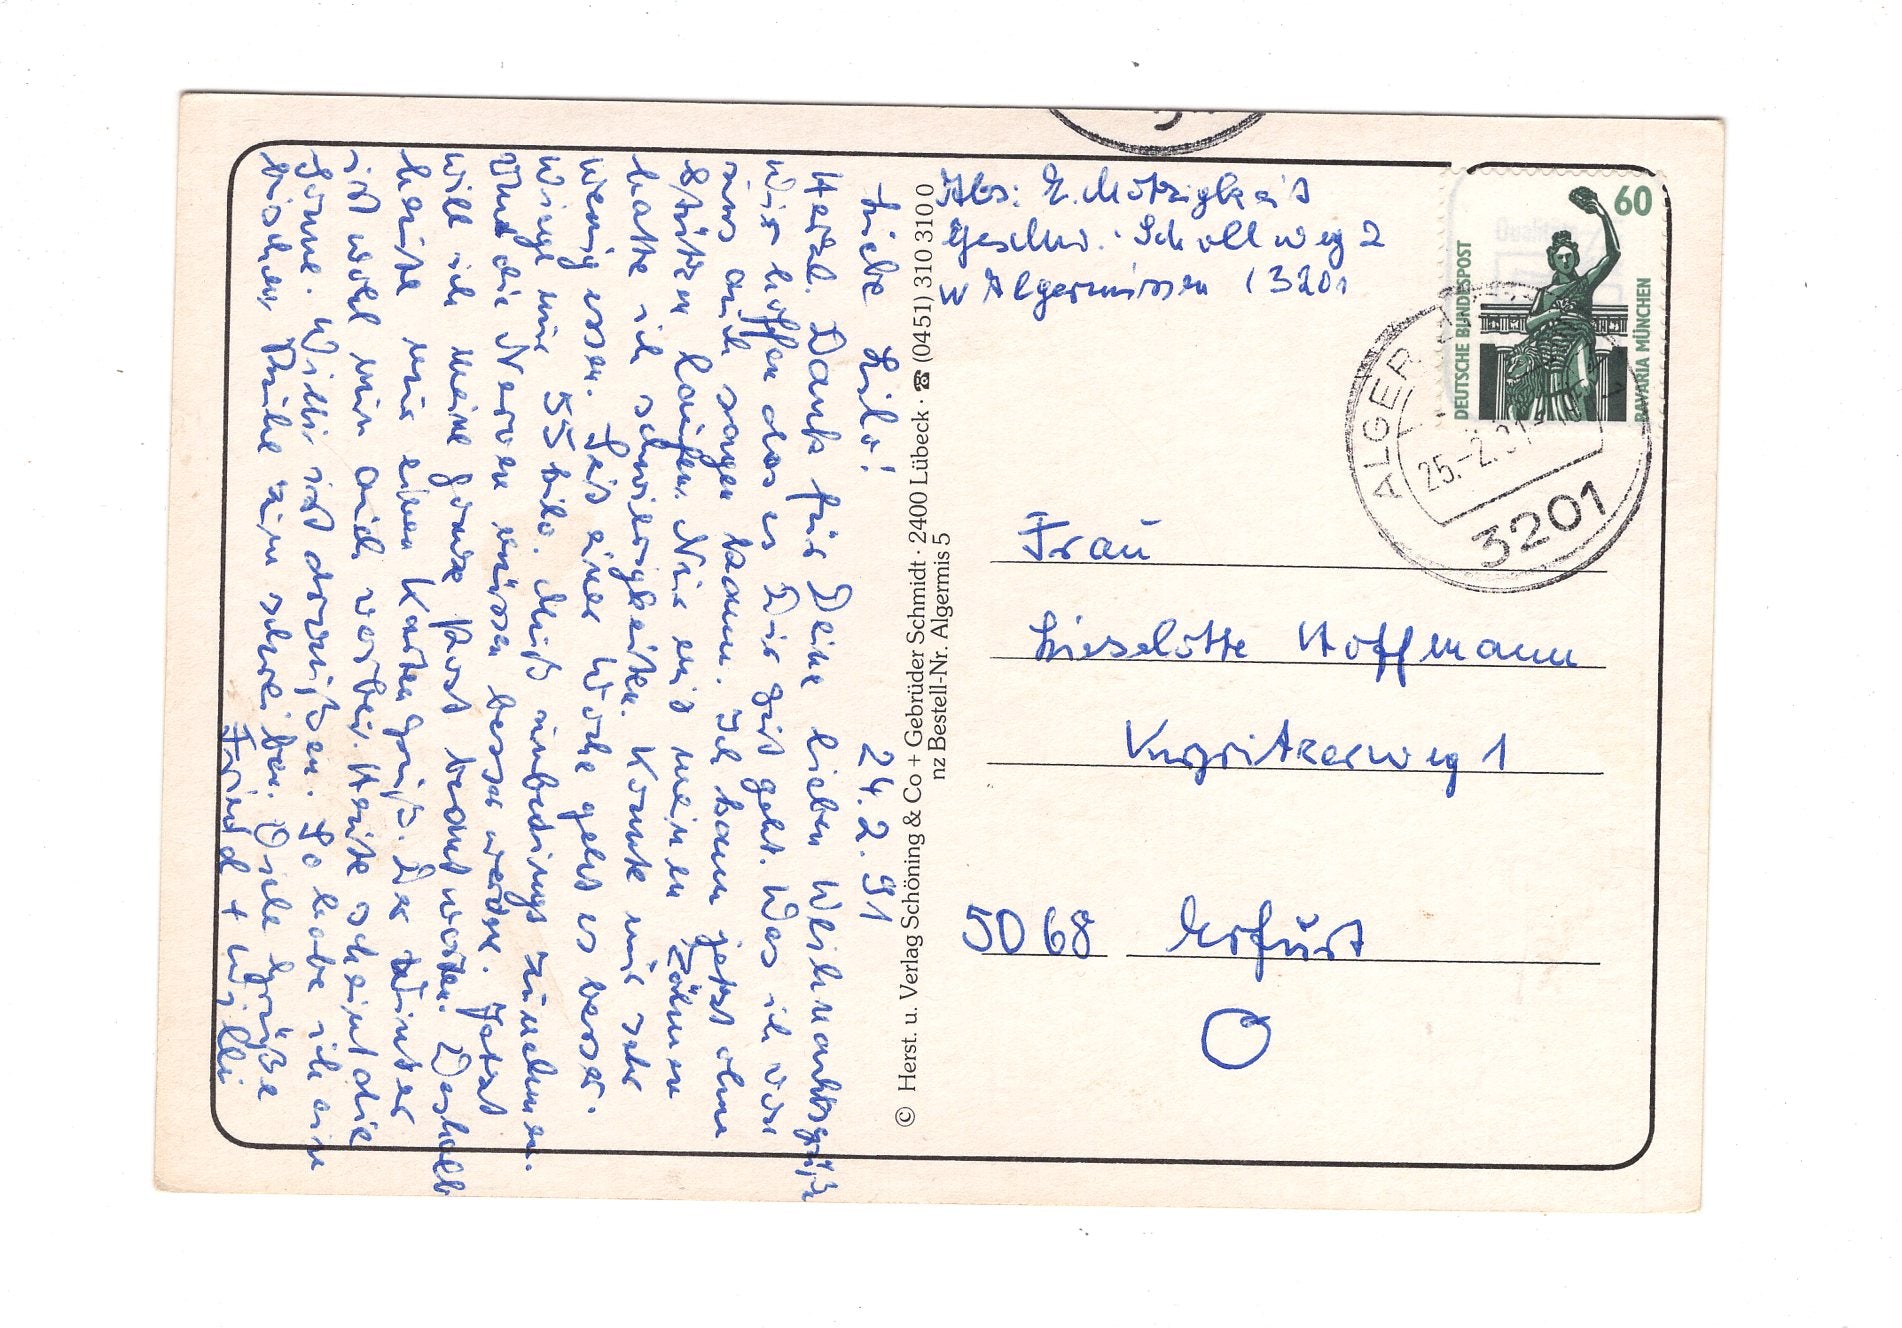 24.2.91
Liebe Lilo!
Herzl. Dank für Deine lieben Weihnachtsgrüße
Wir hoffen das es Dir gut geht. Was ich von
uns auch sagen kann. Ich kann jetzt ohne
Stützen laufen. Nur mit meinen Zähnen
hatte ich schwierigkeiten. Konnte nur sehr
wenig essen. Seit einer Woche geht es besser.
Wiege nur 55 kilo. Muß unbedingt zunehmen.
Und die Nerven müssen besser werden. Jetzt
will ich meine ganze Post beantworten. Deshalb
heute nur einen Kartengruß. Der Winter
ist wohl nun auch vorbei. Heute scheint die
Sonne. Willi ist draußen. So habe ich ein
bischen Ruhe zum schreiben. Viele Grüße
Friedl + Willi
© Herst. u. Verlag Schöning & Co + Gebrüder Schmidt · 2400 Lübeck · ☎ (0451) 310 310 0
nz Bestell-Nr. Algermis 5
Abs: E. Motzigkeit
Geschw.-Scholl weg 2
W Algermissen (3201
60
DEUTSCHE BUNDESPOST
BAVARIA MÜNCHEN
ALGER
25.-2.91
3201
Frau
Lieselotte Hoffmann
weg 1
5068 Erfurt
O